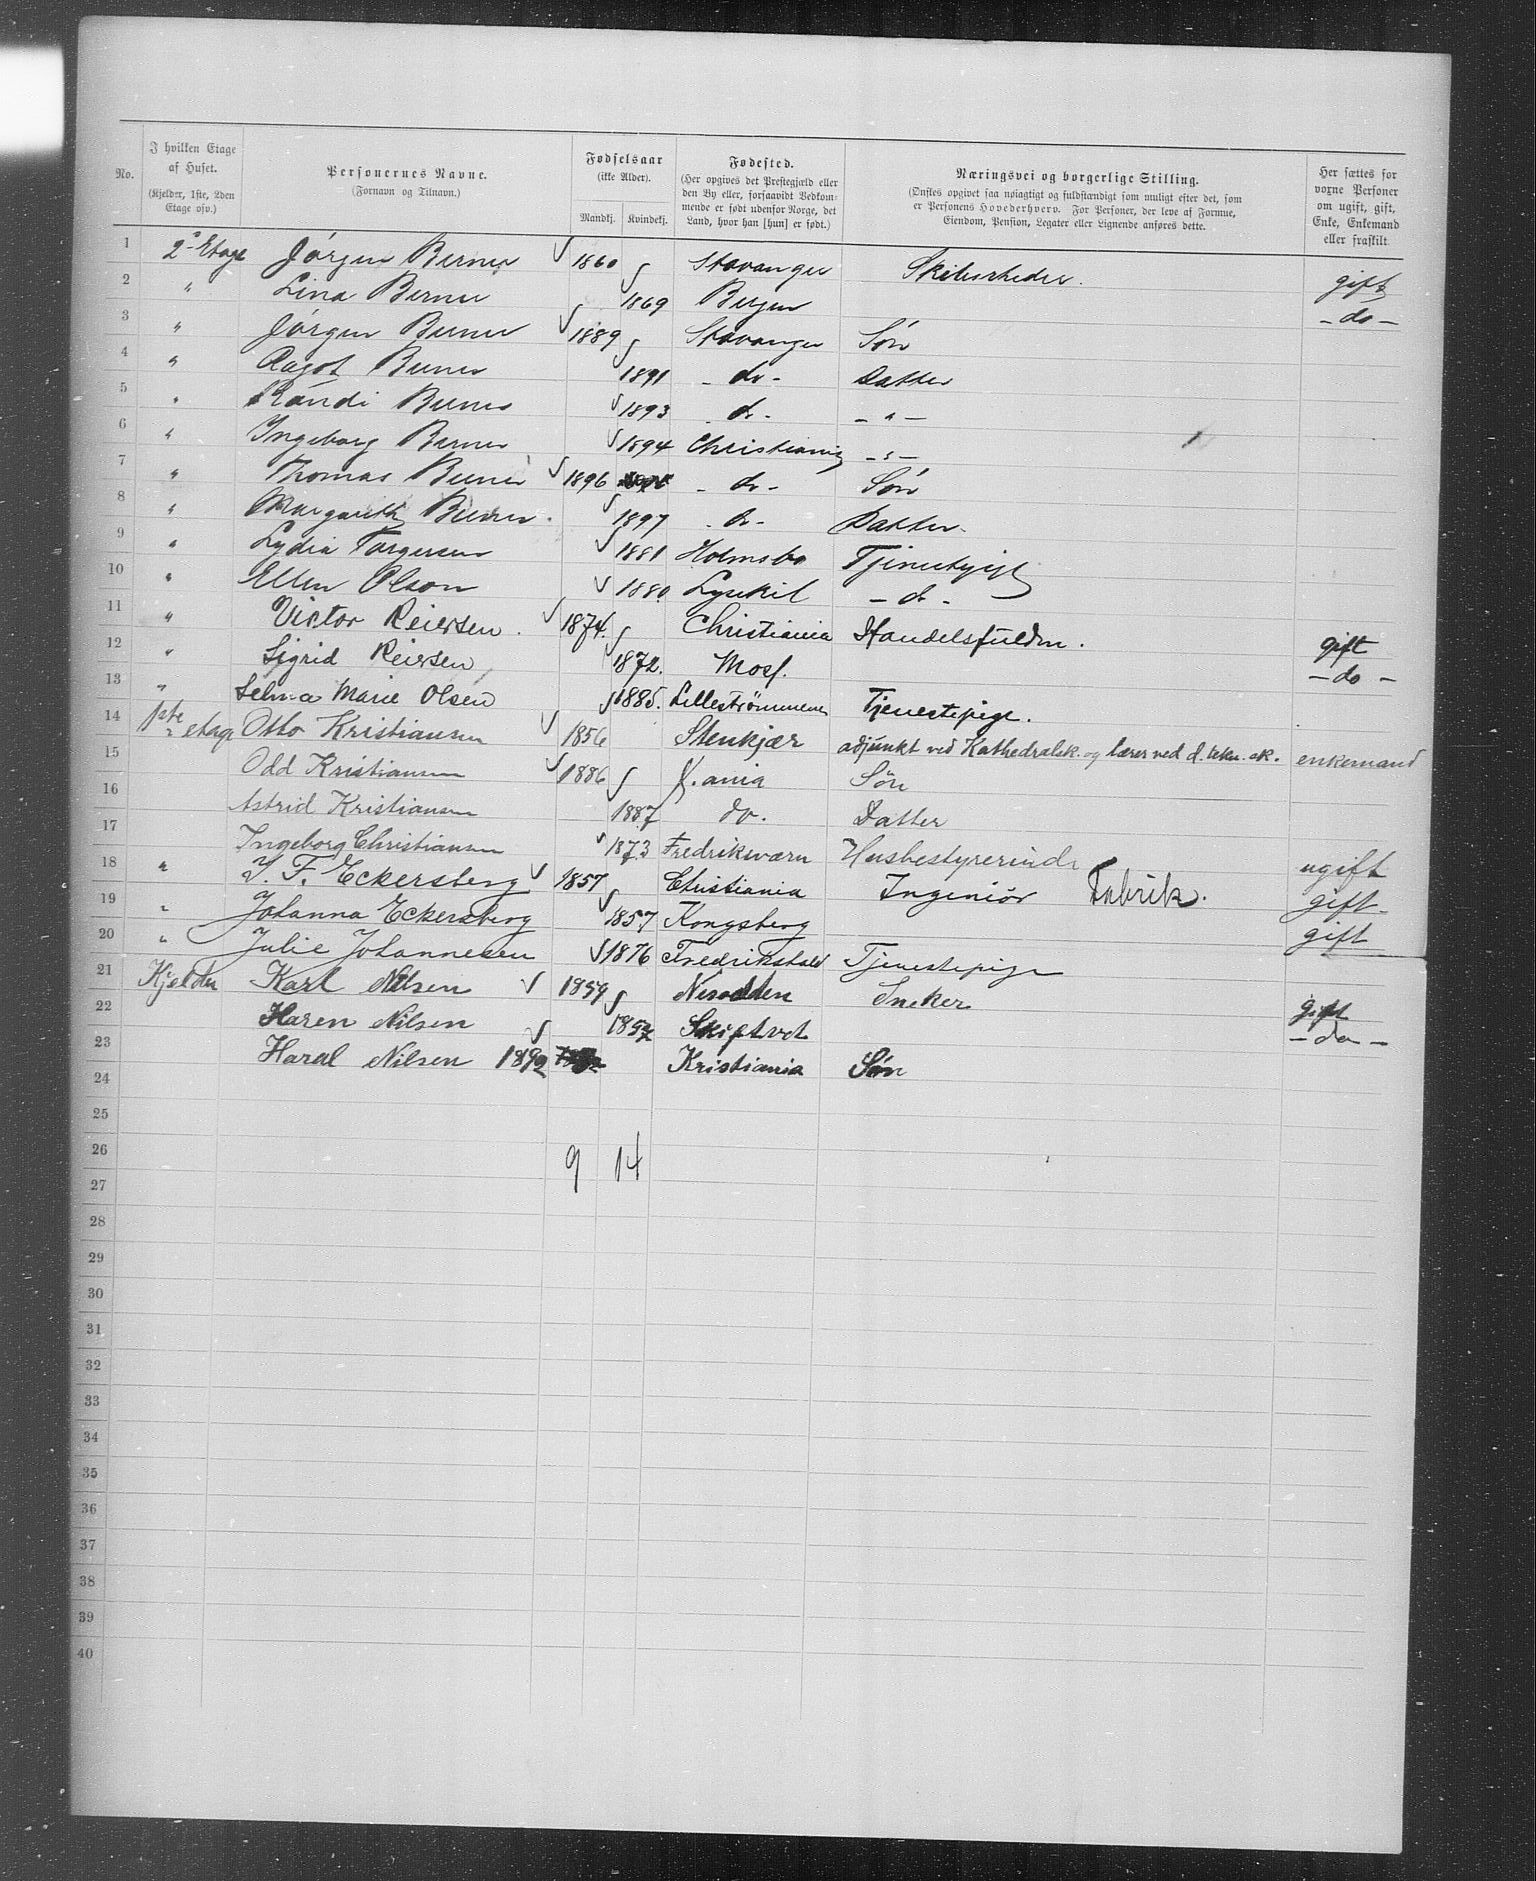 No. I hvilken Etage af Huset. (Kjelder, 1ste, 2den Etage osv.) Personernes Navne. (Fornavn og Tilnavn.) Fødselsaar (ikke Alder). Mandkj. Kvindekj. Fødested. (Her opgives det Prestegjæld eller den By eller, forsaavidt Vedkommende er født udenfor Norge, det Land, hvor han [hun] er født.) Næringsvei og borgerlige Stilling. (Ønskes opgivet saa nøiagtigt og fuldstændigt som muligt efter det, som er Personens Hovederhverv. For Personer, der leve af Formue, Eiendom, Pension, Legater eller Lignende anføres dette. Her sættes for voxne Personer om ugift, gift, Enke, Enkemand eller fraskilt.
1 2den Etage Jørgen Berner 1860 Stavanger Skibsrheder. gift
2 " Lina Berner 1869 Bergen - do -
3 " Jørgen Berner 1889 Stavanger Søn
4 " Aagot Berner 1891 - do - Datter
5 " Randi Berner 1893 - do - - " -
6 " Ingeborg Berner 1894 Christiania - " -
7 " Thomas Berner 1896 - do - Søn
8 " Margarethe Berner. 1897 - do - Datter.
9 " Lydia Torgersen 1881 Holmsbo Tjenestepige
10 " Ellen Olson 1880. Lysekil - do -
11 " Victor Reiersen. 1874. Christiania Handelsfuldm. gift
12 " Sigrid Reiersen 1872. Moss. - do -
13 " Selma Marie Olsen 1885. Lillestrømmen Tjenestepige.
14 1ste etage Otto Kristiansen 1856 Stenkjær adjunkt ved Kathedralsk. og lærer ved d. tekn. sk. enkemand
15 Odd Kristiansen 1886 K.ania Søn
16 Astrid Kristiansen 1887 do. Datter
17 Ingeborg Christiansen 1873 Fredriksværn Husbestyrerinde ugift
18 " J. F. Eckersberg 1857 Christiania Ingeniør Fabrik. gift
19 " Johanna Eckersberg 1857 Kongsberg gift
20 " Julie Johannesen 1876 Fredrikshald Tjenestepige
21 Kjelder Karl Nilsen 1859 Nesodden Sneker gift
22 Karen Nilsen 1852 Skiptvet - do -
23 Haral Nilsen 1892 Kristiania Søn
24
25
26 9 14
27
28
29
30
31
32
33
34
35
36
37
38
39
40